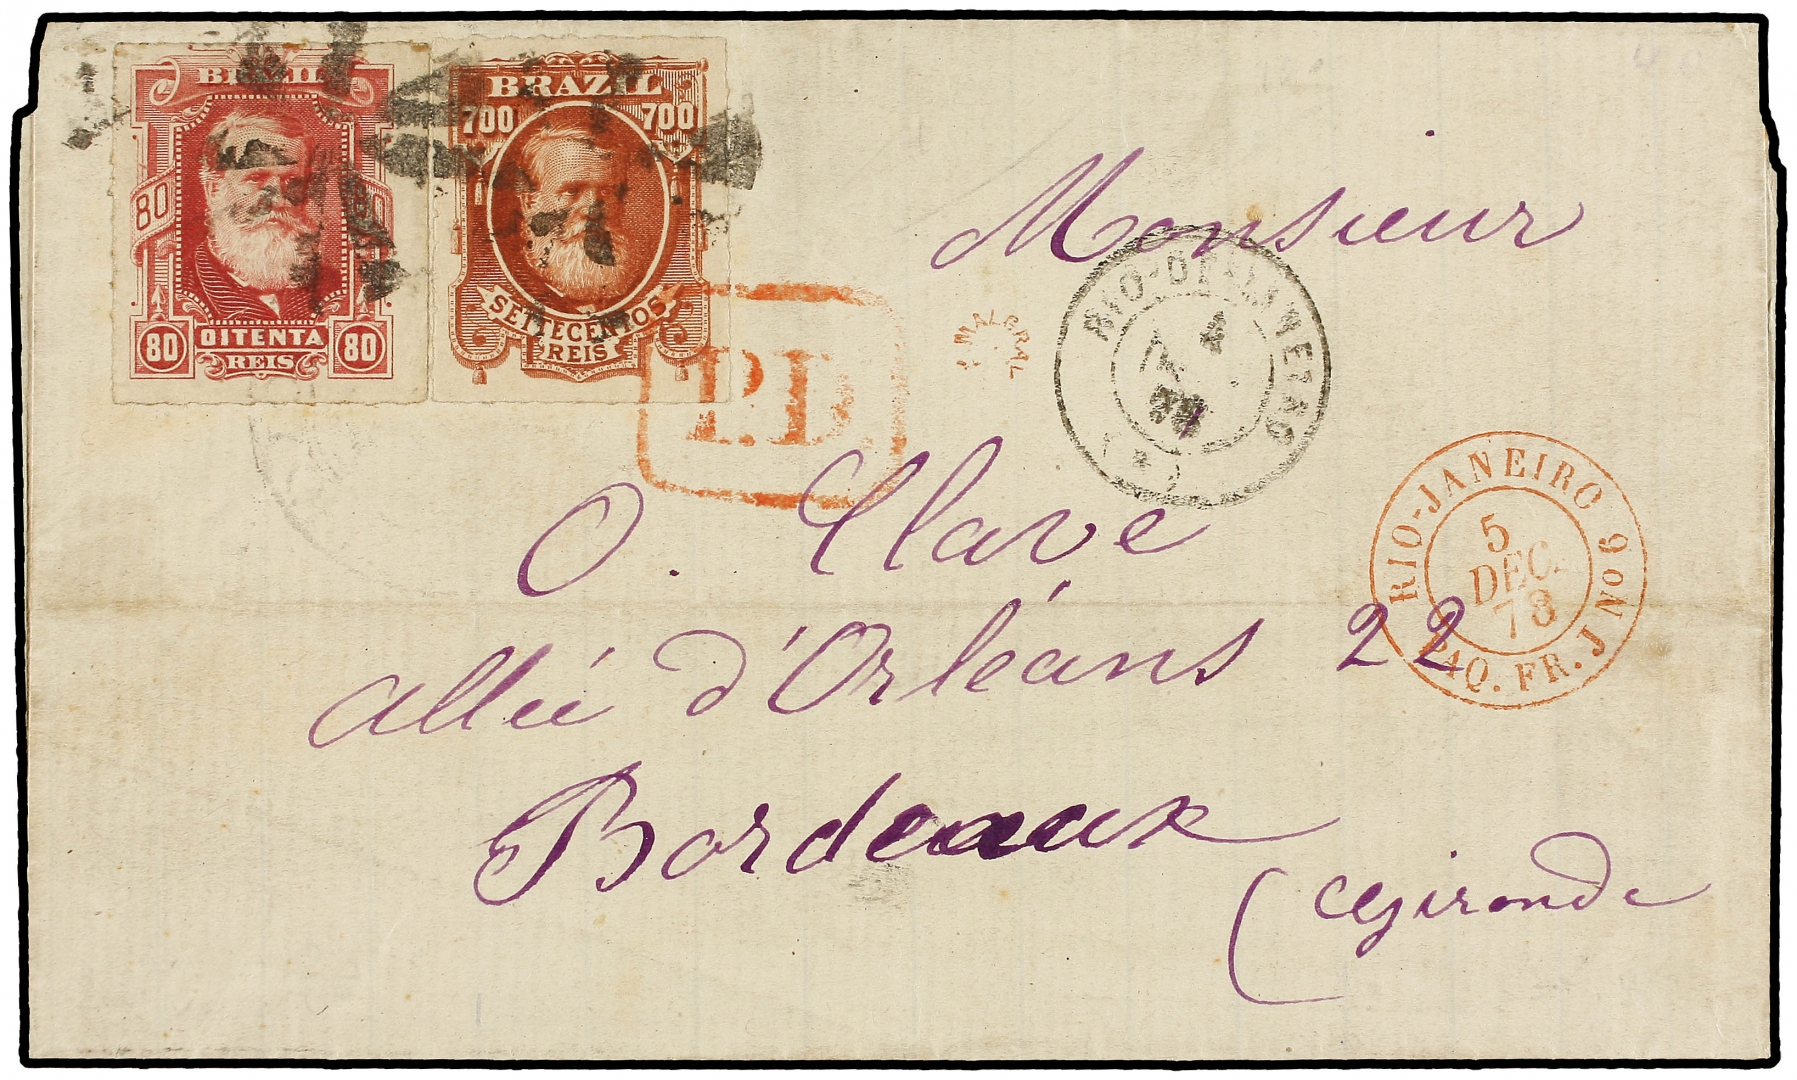 BRAZIL
80 80
80 OITENTA 80
REIS
BRAZIL
700 700
SETTECENTOS
REIS
P.D
MALGRAL
RIO-DE-JANEIRO
4
RIO-JANEIRO
5
DEC.
78
PAQ. FR. J No 6
Monsieur
O. Clave
allée d'Orléans 22
Bordeaux
(Gironde